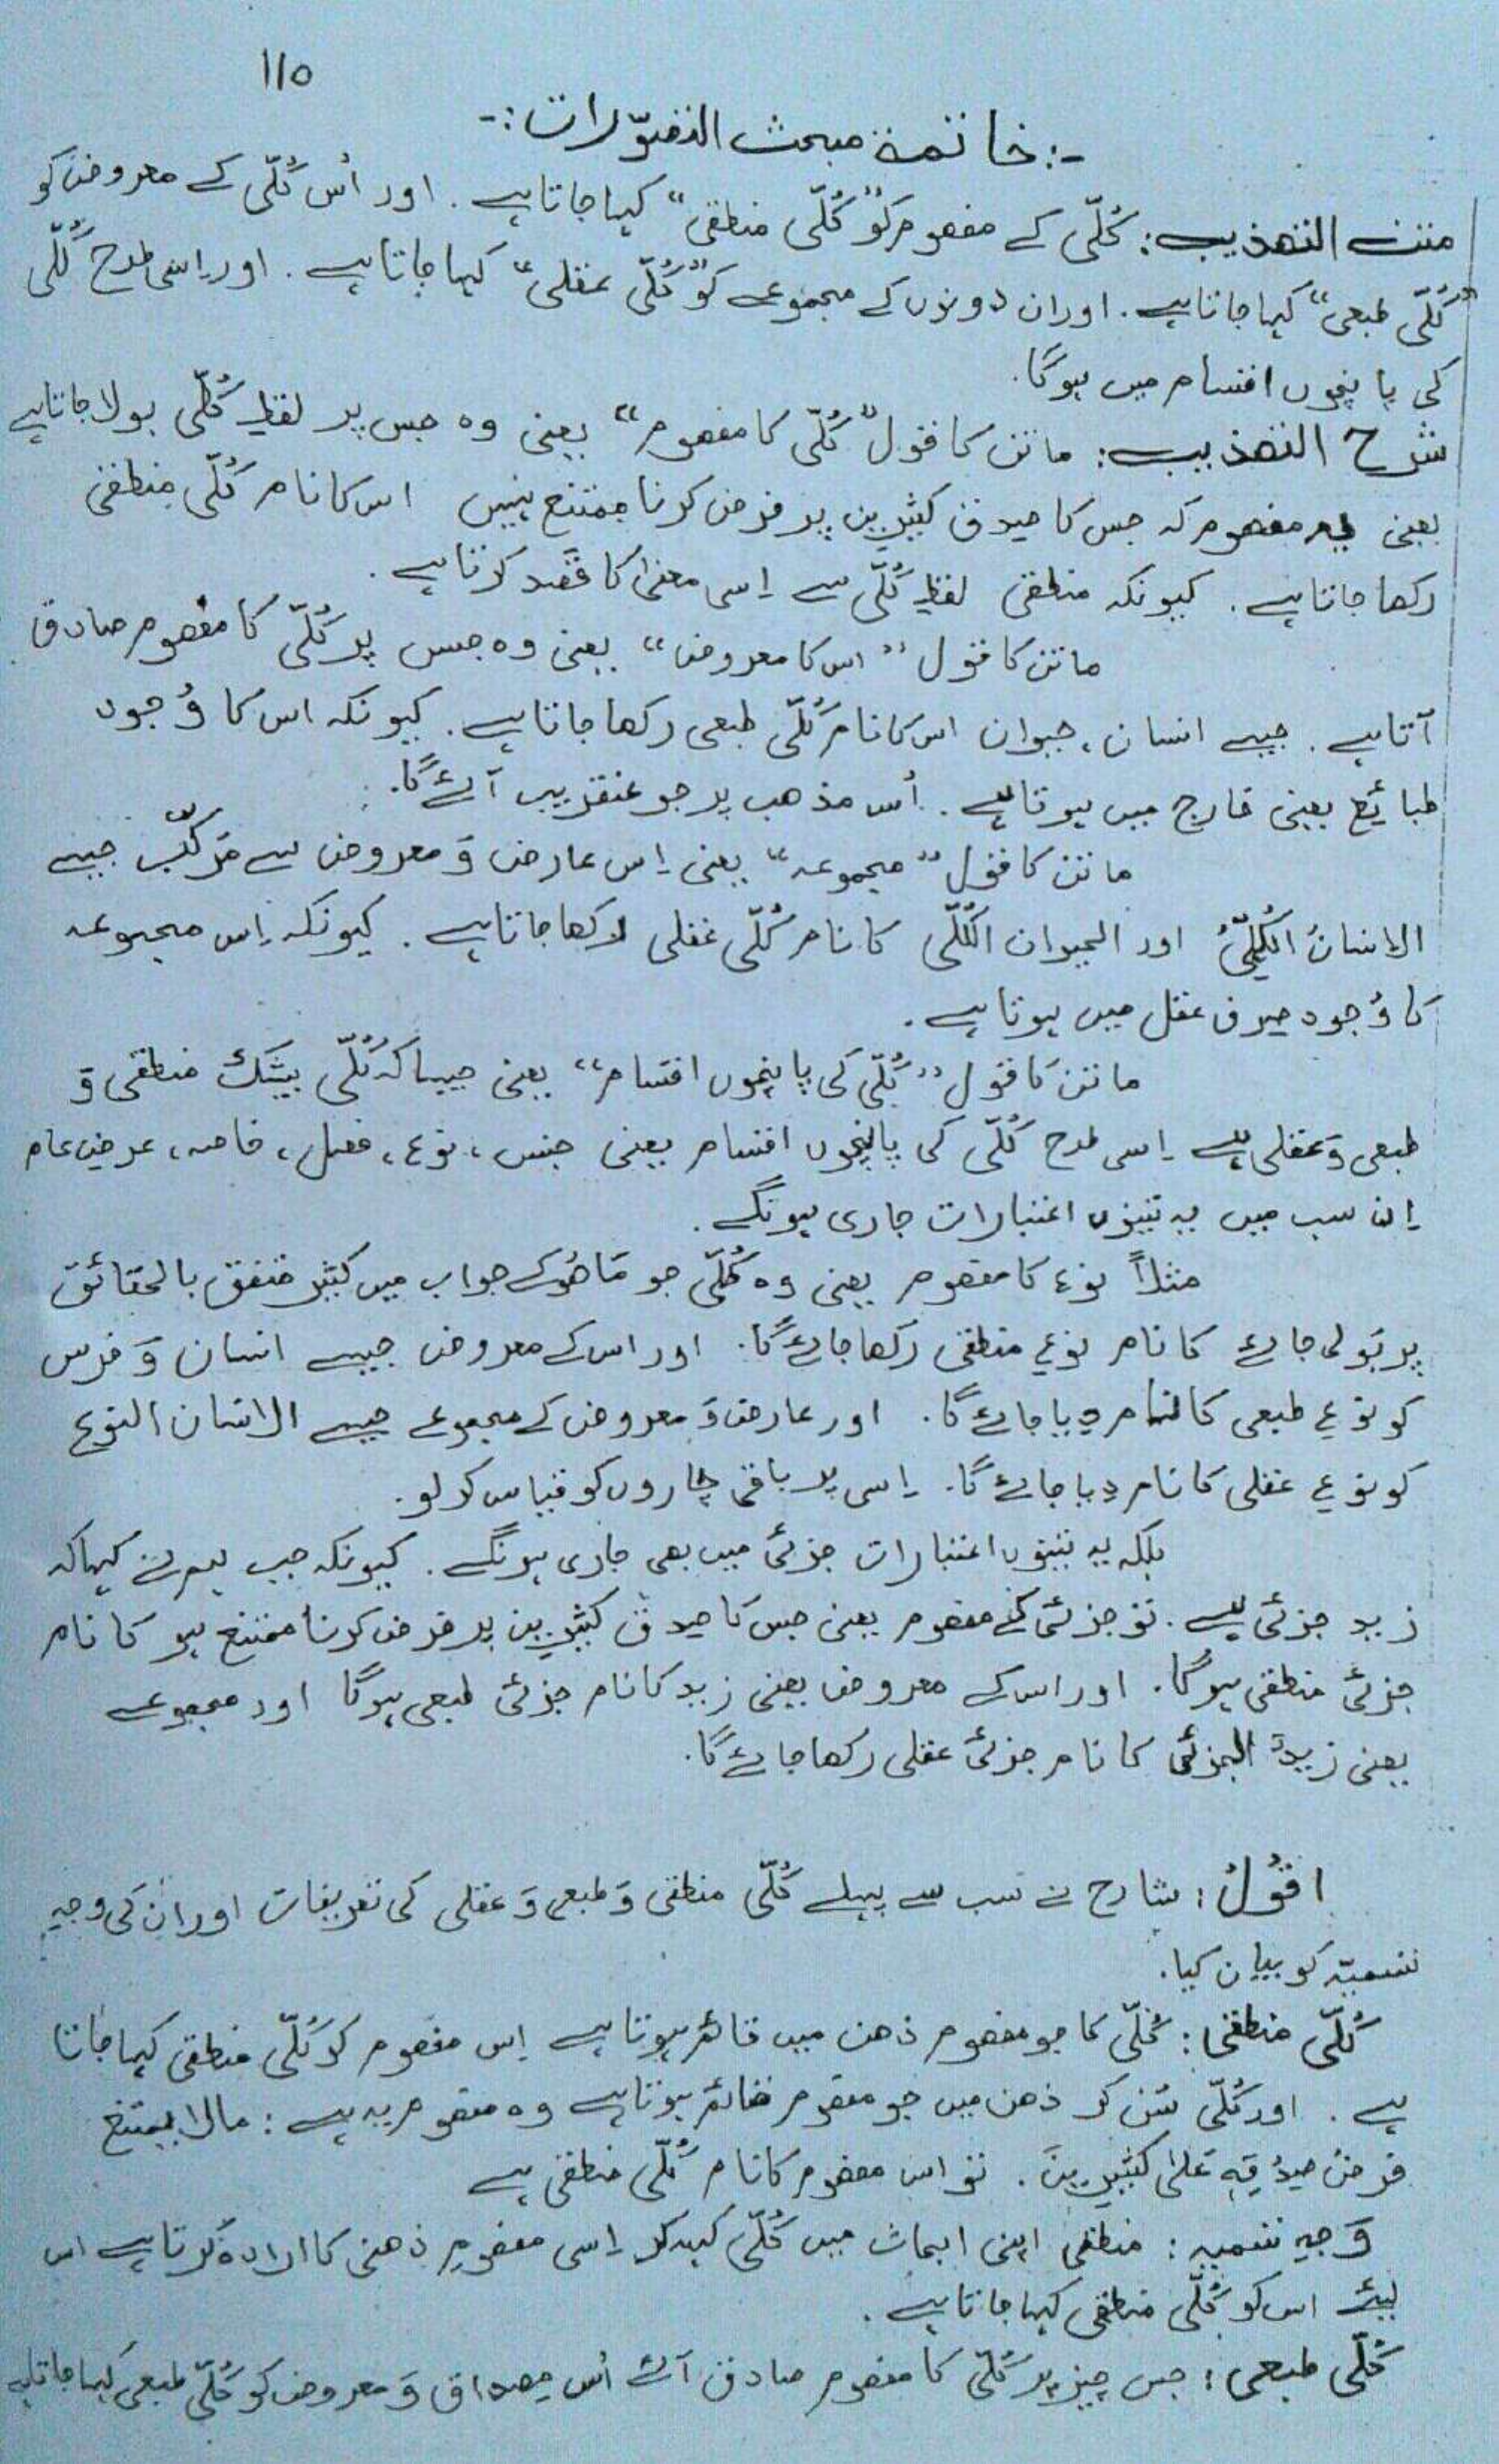 ۱۱۵
-: خاتمۃ مبحث التصوّرات :-
متن التھذیب: کُلّی کے مفھوم کو "کُلّی منطقی" کہا جاتا ہے. اور اُس کُلّی کے معروض کو
"کُلّی طبعی" کہا جاتا ہے. اور ان دونوں کے مجموعے کو "کُلّی عقلی" کہا جاتا ہے. اور اِسی طرح کُلّی
کی پانچوں اقسام میں ہوگا.
شرح التھذیب: ماتن کا قول "کُلّی کا مفھوم" یعنی وہ جس پر لفظِ کُلّی بولا جاتا ہے
یعنی مفھوم کہ جس کا صِدق کثیرین پر فرض کرنا ممتنع نہیں اس کا نام کُلّی منطقی
رکھا جاتا ہے. کیونکہ منطقی لفظِ کُلّی سے اِسی معنیٰ کا قصد کرتا ہے.
ماتن کا قول "اس کا معروض" یعنی وہ جس پر کُلّی کا مفھوم صادق
آتا ہے. جیسے انسان، حیوان اس کا نام کُلّی طبعی رکھا جاتا ہے. کیونکہ اس کا وُجود
طبائع یعنی خارج میں ہوتا ہے. اُس مذھب پر جو عنقریب آئے گا.
ماتن کا قول "مجموعہ" یعنی اِس عارض وَ معروض سے مُرکّب جیسے
الانسانُ الکُلِّیُّ اور الحیوان الکُلّی کا نام کُلّی عقلی رکھا جاتا ہے. کیونکہ اِس مجموعہ
کا وُجود صِرف عقل میں ہوتا ہے.
ماتن کا قول "کُلّی کی پانچوں اقسام" یعنی جیسا کہ کُلّی بیشک منطقی وَ
طبعی وَ عقلی ہے اِسی طرح کُلّی کی پانچوں اقسام یعنی جنس، نوع، فصل، خاصہ، عرضِ عام
اِن سب میں یہ تینوں اعتبارات جاری ہونگے.
مثلاً نوع کا مفھوم یعنی وہ کُلّی جو مَا ھُوَ کے جواب میں کثیر متفق بالحقائق
پر بَولی جائے کا نام نوعِ منطقی رکھا جائے گا. اور اس کے معروض جیسے انسان وَ فرس
کو نوعِ طبعی کا نام دِیا جائے گا. اور عارض وَ معروض کے مجموعے جیسے الانسان النوع
کو نوعِ عقلی کا نام دِیا جائے گا. اِسی پر باقی چاروں کو قیاس کر لو.
بلکہ یہ تینوں اعتبارات جزئی میں بھی جاری ہونگے. کیونکہ جب ہم نے کہا کہ
زید جزئی ہے. تو جزئی کے مفھوم یعنی جس کا صِدق کثیرین پر فرض کرنا ممتنع ہو کا نام
جزئی منطقی ہوگا. اور اس کے معروض یعنی زید کا نام جزئی طبعی ہوگا اور مجموعے
یعنی زیدٌ الجزئی کا نام جزئی عقلی رکھا جائے گا.
اقُولُ: شارح نے سب سے پہلے کُلّی منطقی وَ طبعی وَ عقلی کی تعریفات اور ان کی وجہِ
تسمیّہ کو بیان کیا.
کُلّی منطقی: کُلّی کا جو مفھوم ذھن میں قائم ہوتا ہے اِس مفھوم کو کُلّی منطقی کہا جاتا
ہے. اور کُلّی سُن کر ذھن میں جو مفھوم قائم ہوتا ہے وہ مفھوم یہ ہے: مالا یمتنع
فرضُ صِدْقِہٖ عَلیٰ کثیرین. تو اس مفھوم کا نام کُلّی منطقی ہے
وَجہِ تسمیہ: منطقی اپنی ابحاث میں کُلّی کہہ کر اِسی مفھومِ ذھنی کا ارادہ کرتا ہے اس
لیئے اس کو کُلّی منطقی کہا جاتا ہے.
کُلّی طبعی: جس چیز پر کُلّی کا مفھوم صادق آئے اُس مصداق وَ معروض کو کُلّی طبعی کہا جاتا ہے